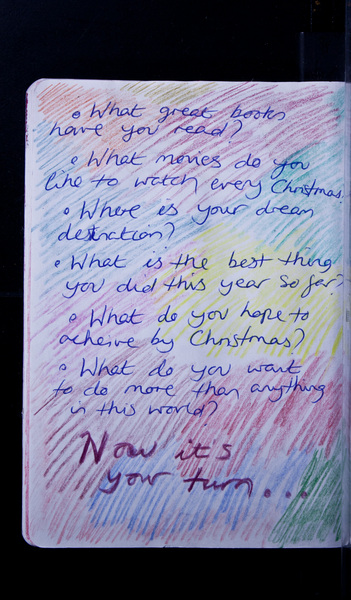 • What great books
have you read?
• What movies do you
like to watch every Christmas?
• Where is your dream
destinction?
• What is the best thing
you did this year so far?
• What do you hope to
acheive by Christmas?
• What do you want
to do more than anything
in this world?
Now it's
your turn...